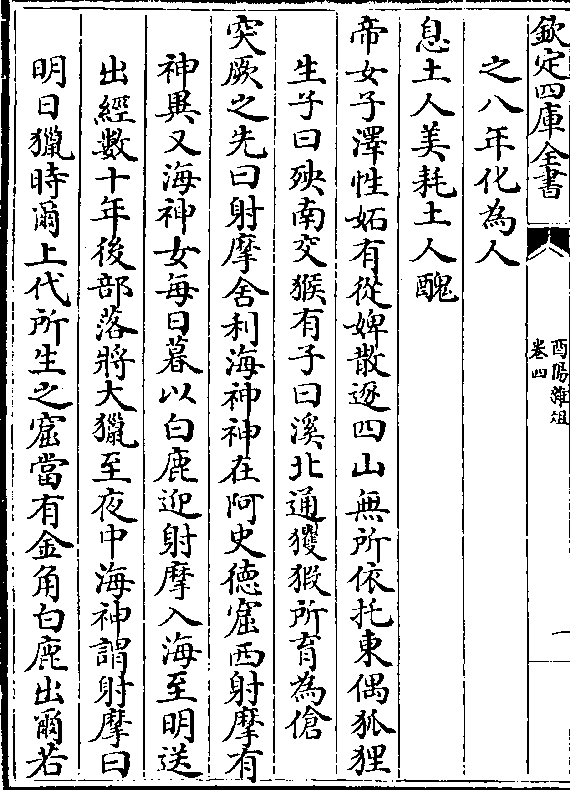 欽定四庫全書
酉陽雜俎
卷四
一
之八年化為人
息土人美耗土人醜
帝女子澤性妬有從婢散逐四山無所依托東偶狐狸
生子曰殃南交猴有子曰溪北通玃猳所育為傖
突厥之先曰射摩舍利海神神在阿史德窟西射摩有
神異又海神女每日暮以白鹿迎射摩入海至明送
出經數十年後部落將大獵至夜中海神謂射摩曰
明日獵時爾上代所生之窟當有金角白鹿出爾若